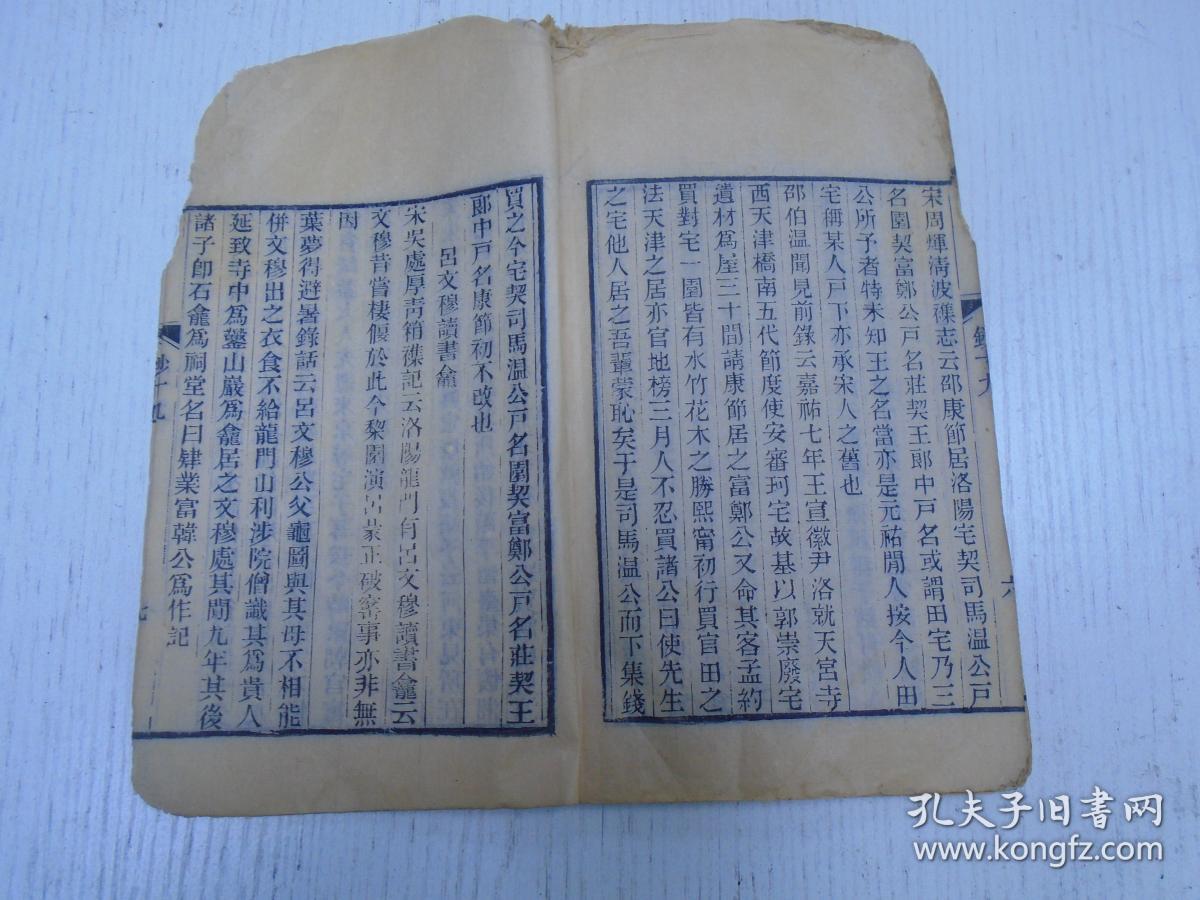 宋周煇淸波雜志云邵康節居洛陽宅契司馬溫公戸
名園契富鄭公戸名莊契王郞中戸名或謂田宅乃三
公所予者特未知王之名當亦是元祐閒人按今人田
宅稱某人戸下亦承宋人之舊也
邵伯溫聞見前錄云嘉祐七年王宣徽尹洛就天宮寺
西天津橋南五代節度使安審珂宅故基以郭崇廢宅
遺材爲屋三十間請康節居之富鄭公又命其客孟約
買對宅一園皆有水竹花木之勝熙甯初行買官田之
法天津之居亦官地榜三月人不忍買諸公曰使先生
之宅他人居之吾輩蒙恥矣于是司馬溫公而下集錢
六
買之今宅契司馬溫公戸名園契富鄭公戸名莊契王
郞中戸名康節初不改也
呂文穆讀書龕
宋吳處厚靑箱襍記云洛陽龍門有呂文穆讀書龕云
文穆昔嘗棲偃於此今棃園演呂蒙正破窰事亦非無
因
葉夢得避暑錄話云呂文穆公父龜圖與其母不相能
併文穆出之衣食不給龍門山利涉院僧識其爲貴人
延致寺中爲鑿山巖爲龕居之文穆處其間九年其後
諸子卽石龕爲祠堂名曰肄業富韓公爲作記
鈔十九
七
孔夫子旧书网
www.kongfz.com